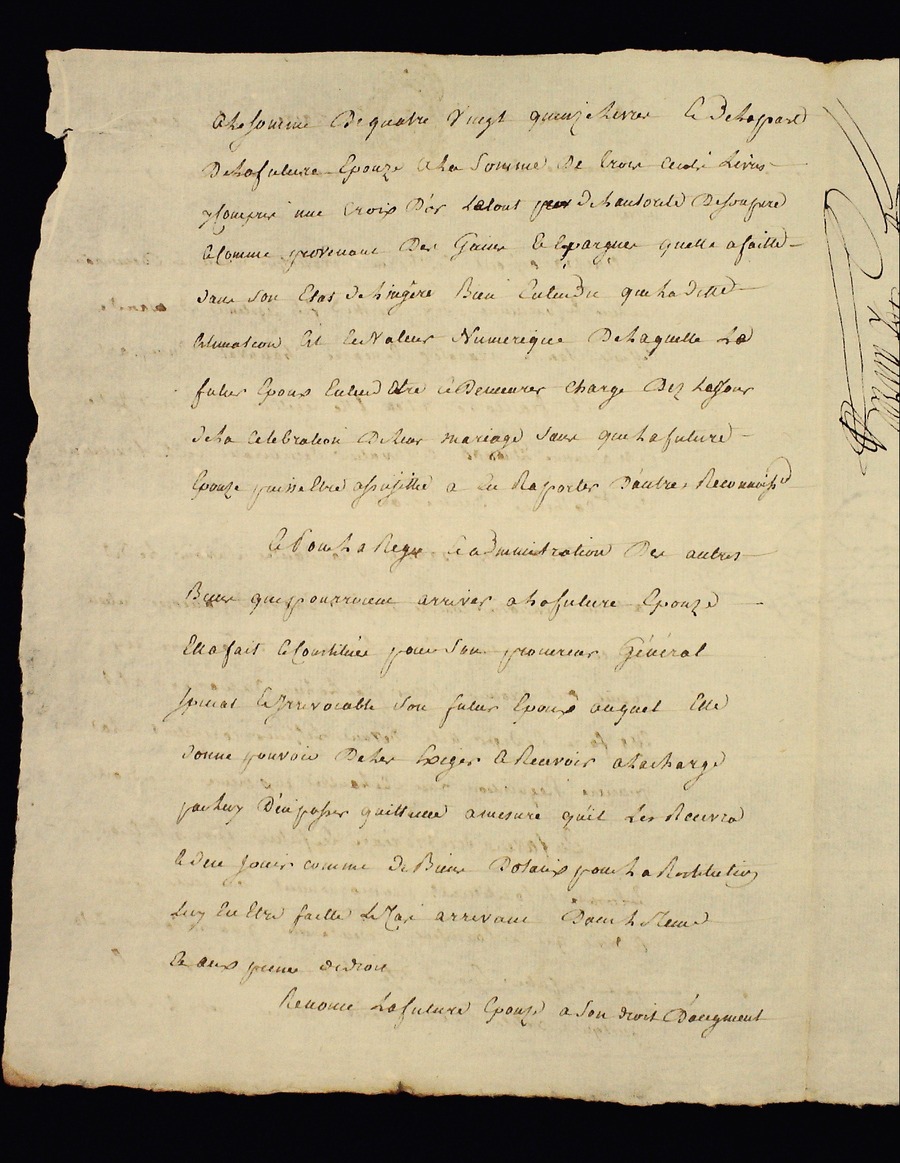 a la somme de quatre vingt quinze livres et de la part
de la future Epouze a la somme de trois cents livres
y compris une croix d'or Le tout de l'autorité de son père
et comme provenant des gains et Epargnes quelle a faitte
dans son Etat de lingère bien Entendu que la ditte
Estimation Est la valeur numerique de laquelle Le
futur Epoux Entend Etre et Demeurer chargé dez le jour
de la celebration de leur mariage sans que la future
Epouze puisse Etre assujettie a En Raporter d'autre Reconnoisse
Et pour la Regie et administration des autres
Biens qui pourroient arriver a la future Epouze
Elle a fait et Constitué pour son procureur Général
Special et irrevocable son futur Epoux auquel Elle
donne pouvoir de les Exiger et Recevoir a la charge
par luy d'en passer quittance a mesure qu'il Les Recevra
et d'en jouir comme de Biens Dotaux pour la Restitution
luy En Etre faitte le cas arrivant dans le meme
et aux peines de droit
Renonce La future Epouze a son droit d'augment